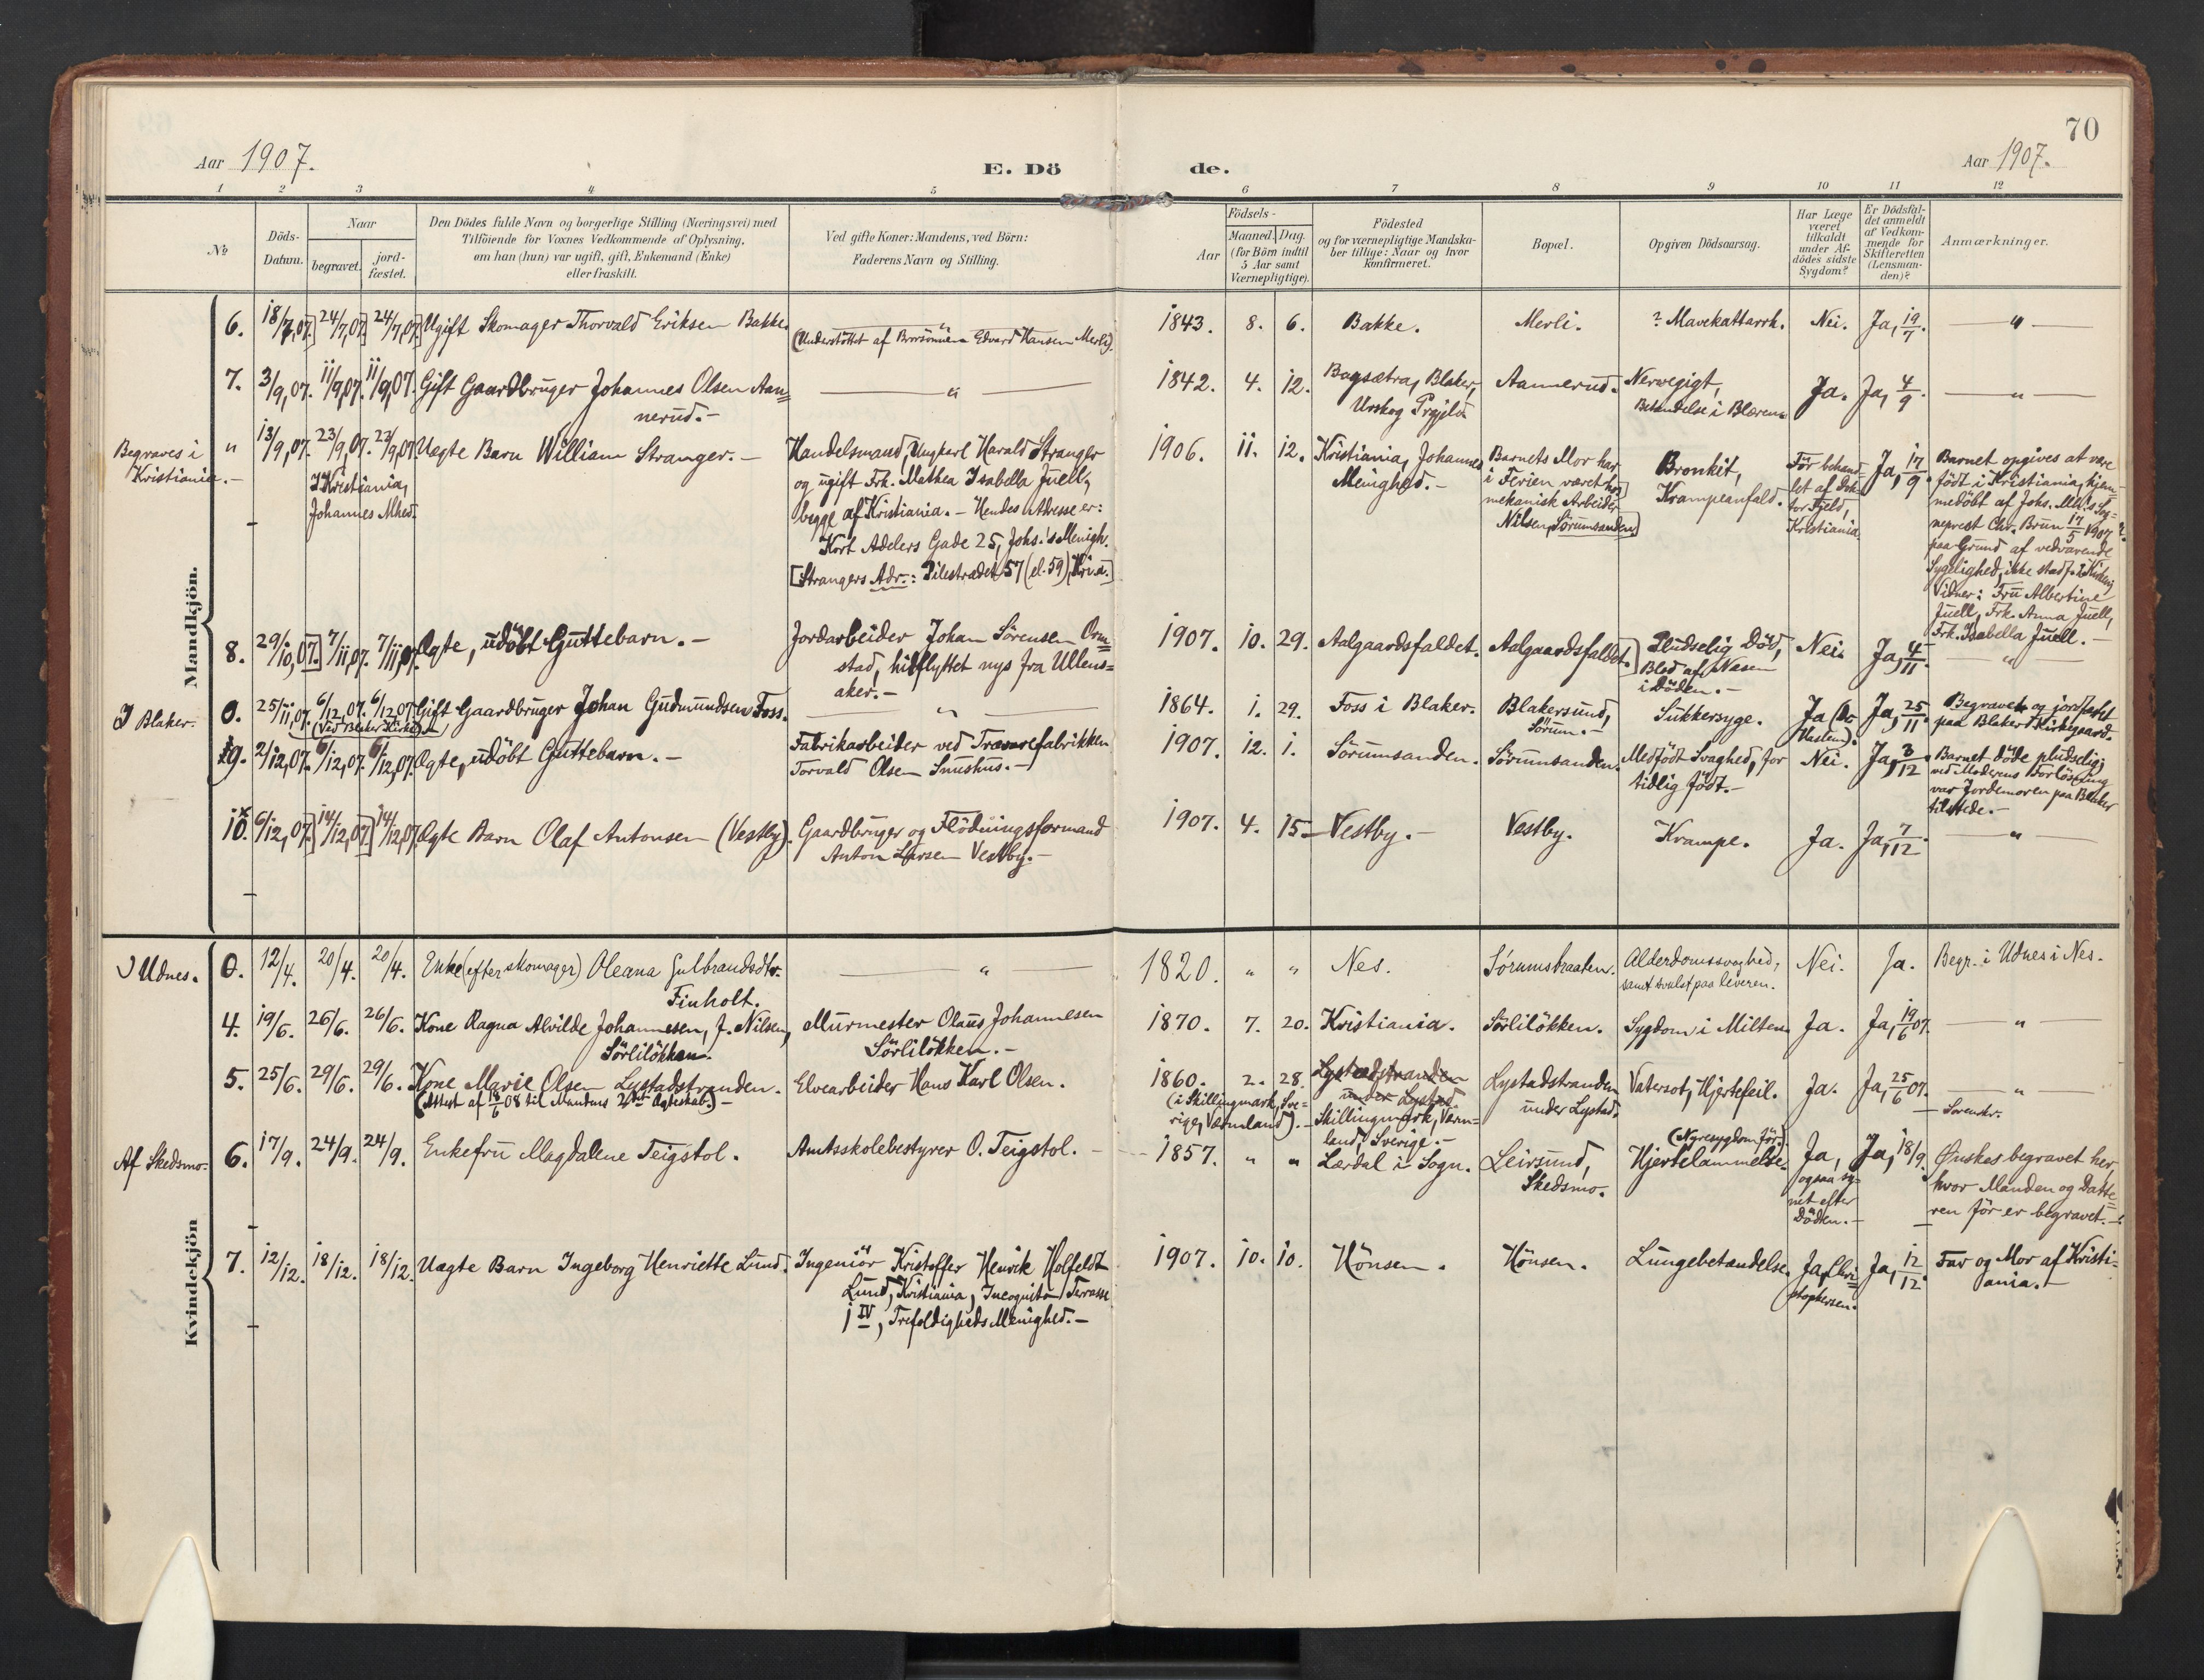 70
Aar 1907.
E. Döde.
Aar 1907.
1 2 3 4 5 6 7 8 9 10 11 12
No
Döds-Datum.
Naar
begravet.
jord-fæstet.
Den Dödes fulde Navn og borgerlige Stilling (Næringsvei) med
Tilföiende for Voxnes Vedkommende af Oplysning,
om han (hun) var ugift, gift, Enkemand (Enke)
eller fraskilt.
Ved gifte Koner: Mandens, ved Börn:
Faderens Navn og Stilling.
Födsels-
Aar
Maaned. Dag.
(for Börn indtil
5 Aar samt
Værnepligtige).
Födested
og for værnepligtige Mandska-
ber tillige: Naar og hvor
konfirmeret.
Bopæl.
Opgiven Dödsaarsag.
Har Læge
været
tilkaldt
under Af-
dödes sidste
Sygdom?
Er Dödsfal-
det anmeldt
af Vedkom-
mende for
Skifteretten
(Lensman-
den)?
Anmærkninger.
Mandkjön.
6. 18/7,07. 24/7,07. 24/7,07. Ugift Skomager Thorvald Eriksen Bakke.
(Understöttet af Brorsönnen Edvard Hansen Merli).
1843. 8. 6. Bakke. Merli. ? Mavekattarrh. Nei. Ja, 19/7. — " —
7. 3/9,07. 11/9,07. 11/9,07. Gift Gaardbruger Johannes Olsen Aan=
nerud.—
— " —
1842. 4. 12. Bagsætra, Blaker,
Urskog Prgjld.
Aannerud. Nervegigt,
Betændelse i Blæren.
Ja. Ja, 4/9. — " —
Begraves i
Kristiania.—
" 13/9,07. 23/9,07. 22/9,07 Uægte Barn William Stranger.—
I Kristiania,
Johannes Mhed.
Handelsmand, Ungkarl Harald Stranger
og ugift Frk. Mathea Isabella Juell,
begge af Kristiania.— Hendes Adresse er:
Kort Adelers Gade 25, Johs.'s Menigh.
[Strangers Adr.: Pilestrædet 57 (el. 59) Kri.a.]
1906. 11. 12. Kristiania, Johannes
Menighed.—
Barnets Mor har
i Ferien været hos
mekanisk Arbeider
Nilsen, Sörumsanden.
Bronkit,
Krampeanfald.
Før behand-
let af Dok-
tor Fjeld,
Kristiania.
Ja, 17/9.
Barnet opgives at være
födt i Kristiania, hjem-
medöbt af Johs. Mh.'s Sog=
neprest Chr. Brun 17/5 1907
paa Grund af vedvarende
Sygelighed, ikke stadf. i Kirken;
Vidner: Fru Albertine
Juell, Frk. Anna Juell,
Frk. Isabella Juell.—
8. 29/10,07. 7/11,07. 7/11,07. Ægte, udöbt Guttebarn.—
Jordarbeider Johan Sörensen Orm=
stad, hidflyttet nys fra Ullens=
aker.—
1907. 10. 29. Aalgaardsfaldet. Aalgaardsfaldet.
Pludselig Död,
Blod af Næsen
i Döden.—
Nei. Ja, 4/11. — " —
I Blaker.
0. 25/11,07. 6/12,07. 6/12,07 Gift Gaardbruger Johan Gudmundsen Foss.
(Ved Blaker Kirke)
— " —
1864. 1. 29. Foss i Blaker. Blakersund,
Sörum.—
Sukkersyge. Ja (Dr.
Vasten). Ja, 25/11.
Begravet og jordfæstet
paa Blaker Kirkegaard.
9. 2/12,07. 6/12,07. 6/12,07. Ægte, udöbt Guttebarn.—
Fabrikarbeider ved Trævarefabrikken
Torvald Olsen Snushus.—
1907. 12. 1. Sörumsanden. Sörumsanden. Medfödt Svaghed, for
tidlig födt.—
Nei. Ja, 3/12.
Barnet döde pludselig;
ved Moderens Forlösning
var Jordemoren paa Blaker
tilstede.—
10. 6/12,07. 14/12,07. 14/12,07. Ægte Barn Olaf Antonsen (Vestby).
Gaardbruger og Flödningsformand
Anton Larsen Vestby.—
1907. 4. 15. Vestby.— Vestby. Krampe. Ja. Ja, 7/12. — " —
Kvindekjön
I Udnes.
0. 12/4. 20/4. 20/4. Enke (efter skomager) Oleana Gulbrandsdtr.
Finholt.
— " —
1820. " " Nes. Sörumsbraaten. Alderdomssvaghed,
samt svulst paa leveren.
Nei. Ja. Begr. i Udnes i Nes.
4. 19/6. 26/6. 26/6. Kone Ragna Alvilde Johannesen, f. Nilsen,
Sörlilökken.
Murmester Olaus Johannesen
Sörlilökken.—
1870. 7. 20. Kristiania. Sörlilökken. Sygdom i Milten. Ja. Ja, 19/6 07. — " —
5. 25/6. 29/6. 29/6. Kone Marie Olsen Lystadstranden.
(Attest af 18/6 08 til Mandens 2det Ægteskab.)—
Elvearbeider Hans Karl Olsen.
1860. 2. 28.
(i Skillingmark, Sve-
rige, Værmland).—
Lystadstranden
under Lystad
Skillingmark, Værm-
land, Sverige.—
Lystadstranden
under Lystad.
Vatersot, Hjertefeil. Ja. Ja, 25/6 07. — " —
Svensk.
Af Skedsmo.
6. 17/9. 24/9. 24/9. Enkefru Magdalene Teigstol.
Amtsskolebestyrer O. Teigstol.
1857. " " Lærdal i Sogn. Leirsund,
Skedsmo.
(Nyresygdom för).
Hjertelammelse.
Ja,
ogsaa sy=
net efter
Döden.—
Ja, 18/9.
Ønskes begravet her,
hvor Manden og Datte=
ren för er begravet.—
7. 12/12. 18/12. 18/12. Uægte Barn Ingeborg Henriette Lund.
Ingeniör Kristoffer Henrik Holfeldt
Lund, Kristiania, Incognito Terrasse
1 IV, Trefoldigheds Menighed.—
1907. 10. 10. Hönsen. Hönsen. Lungebetændelse. Ja, Chri=
stophersen. Ja, 12/12.
Far og Mor af Kristi-
ania.—